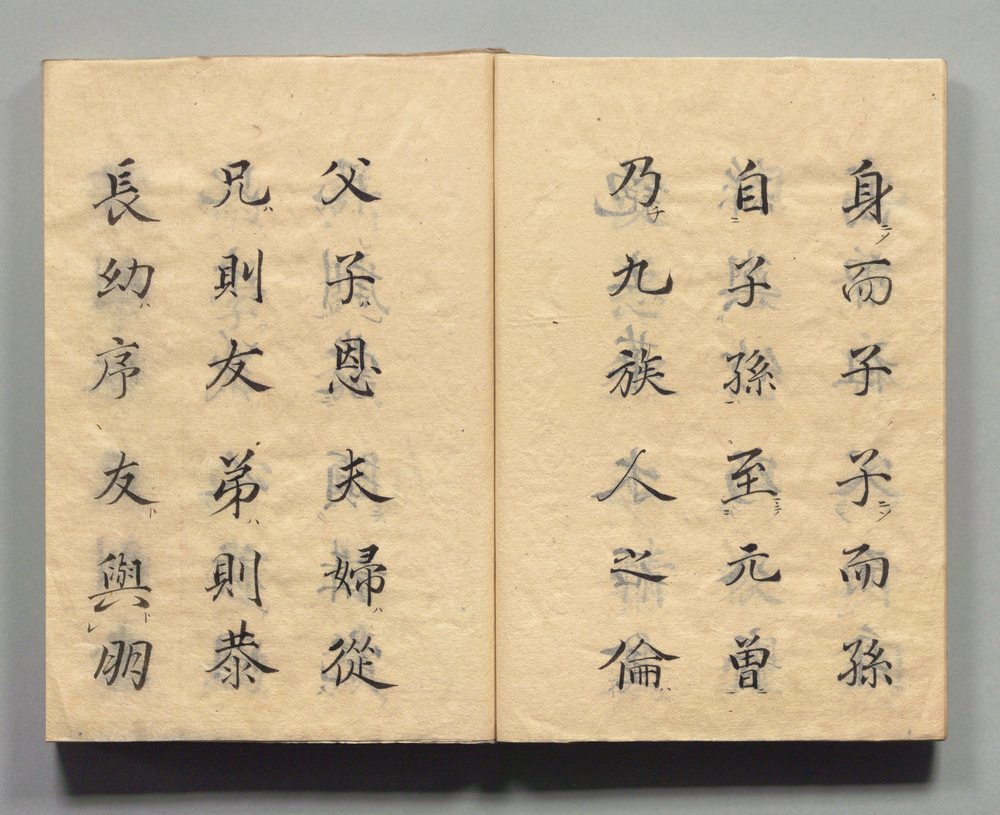 身而子子而孫
自子孫至元曽
乃九族人之倫
父子恩夫婦從
兄則友弟則恭
長幼序友與朋